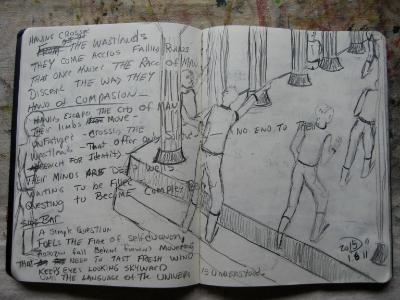 HAVING CROSSED
THE WASTLANDS
THEY COME ACCROS FALLING RUINS
THAT ONCE HOUSED THE RACE OF MAN
THE WAY THEY
HAND OF COMPASION
HAVING ESCAPED THE CITY OF MAN
THEIR LIMBS MOVE
UNFATIGUED - CROSSING THE
WASTLANDS - THAT OFFER ONLY SOLITUDE
NO END TO THEIR
SEARCH FOR IDENTITY
THEIR MINDS ARE DEEP WELLS
WAITING TO BE FILLED
QUESTING TO BECOME COMPLEX
SIDE BAR
A SIMPLE QUESTION
FUELS THE FIRE OF SELFDISCOVERY
HORIZONS FALL BEHIND FURIOUS MOVEMENT
THAT NEED TO TAST FRESH WIND
KEEPS EYES LOOKING SKYWARD
UNTIL THE LANGUAGE OF THE UNIVERSE
IS UNDERSTOOD.
1.8.11